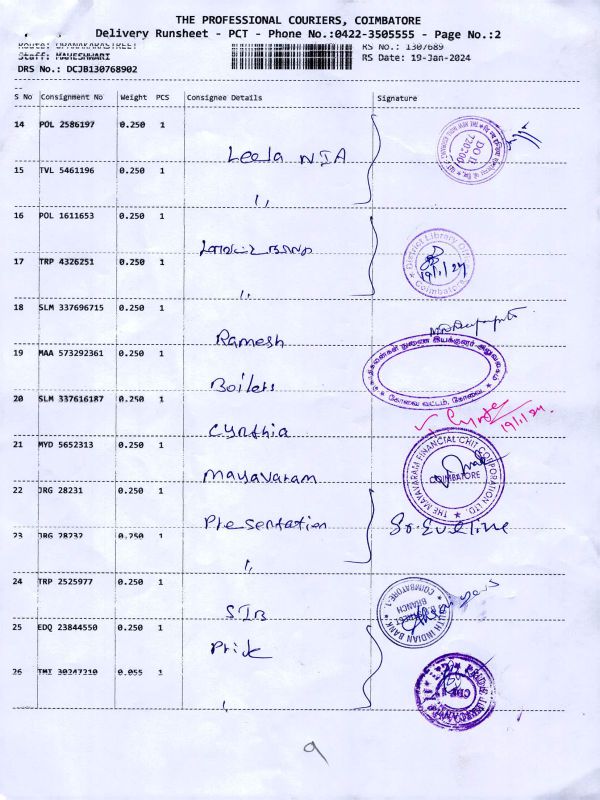 THE PROFESSIONAL COURIERS, COIMBATORE
Delivery Runsheet - PCT - Phone No.:0422-3505555 - Page No.:2
RS No.: 1307689
Staff: MAHESHWARI
RS Date: 19-Jan-2024
DRS No.: DCJB130768902
S No Consignment No Weight PCS Consignee Details Signature
14 POL 2586197 0.250 1
Leela NIA
15 TVL 5461196 0.250 1
"
16 POL 1611653 0.250 1
District Library Office
Coimbatore
19/1/24
17 TRP 4326251 0.250 1
"
18 SLM 337696715 0.250 1
Ramesh
19 MAA 573292361 0.250 1
Boilers
கோவை வட்டம், கோவை
20 SLM 337616187 0.250 1
Cynthia
19/1/24.
21 MYD 5652313 0.250 1
Mayavaram
THE MAYAVARAM FINANCIAL CHIT CORPORATION LTD.
COIMBATORE
22 JRG 28231 0.250 1
Presentation
Sr. Eveline
23 JRG 28232 0.250 1
"
24 TRP 2525977 0.250 1
SIB
SOUTH INDIAN BANK
BRANCH
COIMBATORE-1
25 EDQ 23844550 0.250 1
Prick
26 TMI 30247210 0.055 1
"
9